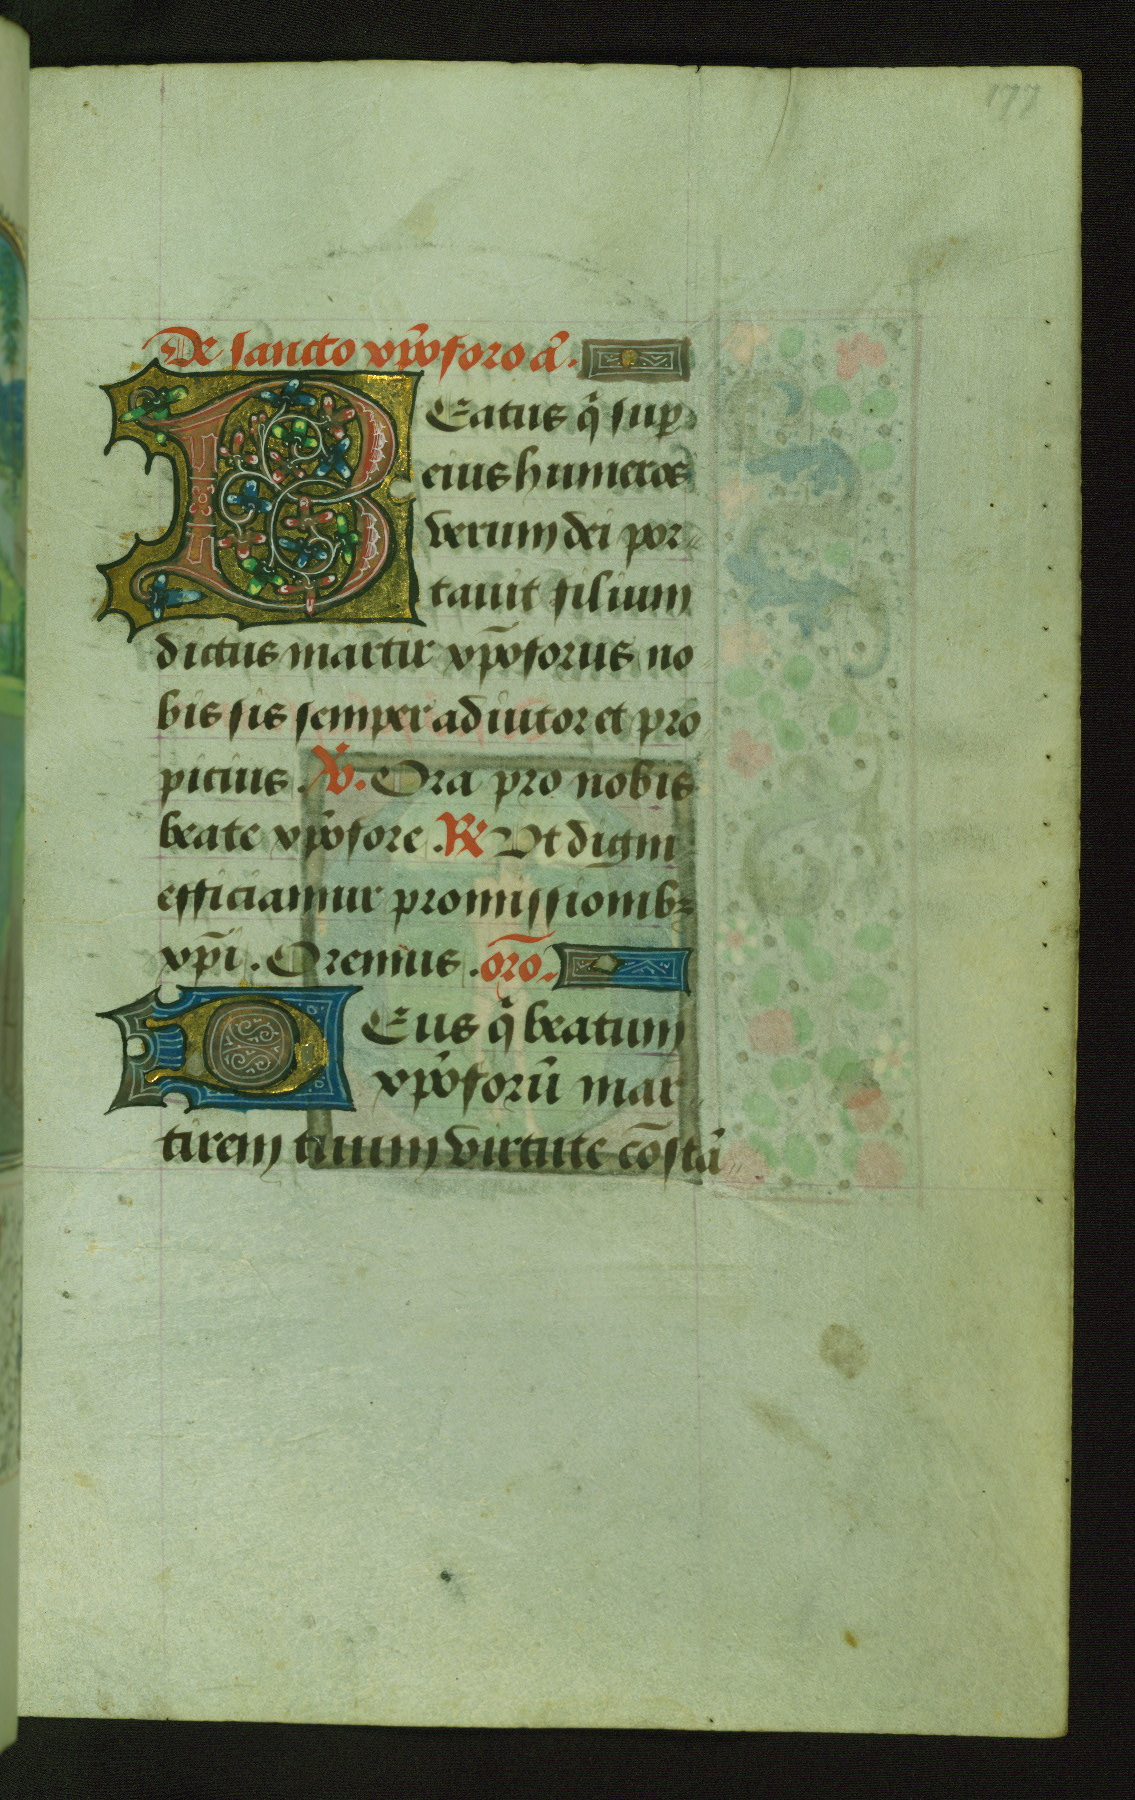 177
De sancto xp̄oforo a͞.
Beatus q̄ sup
eius humeros
verum dei por-
tauit filium
dictus martir xp̄oforus no
bis sis semper adiutor et pro
picius. V. Ora pro nobis
beate xp̄ofore. R Vt digni
efficiamur promissionib3
xp̄i. Oremus. or̄o.
Deus q̄ beatum
xp̄oforū mar
tirem tuum virtute cōstā